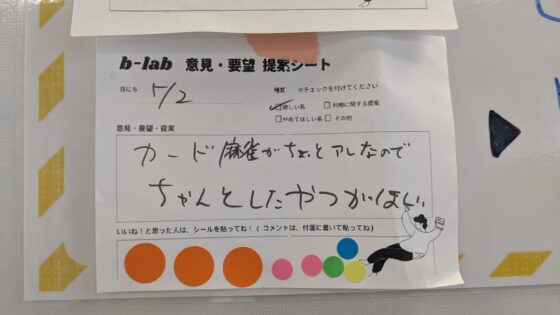 b-lab 意見・要望 提案シート
日にち 5/2 種類 ※チェックを付けてください
☑欲しい系 □利用に関する提案
□やめてほしい系 □その他
意見・要望・提案
カード麻雀がちょっとアレなので
ちゃんとしたやつがほしい。
いいね！と思った人は、シールを貼ってね！（コメントは、付箋に書いて貼ってね）